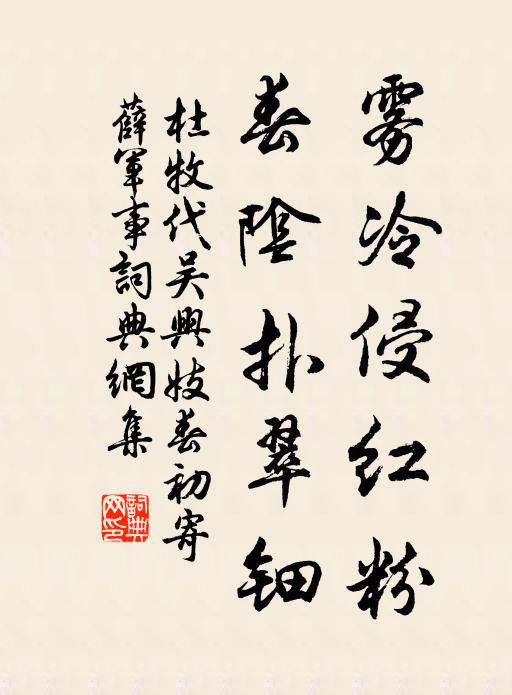 雾冷侵红粉
春陰扑翠钿
杜牧代吴興妓春初寄
薛军事詞典網集
詞典网印